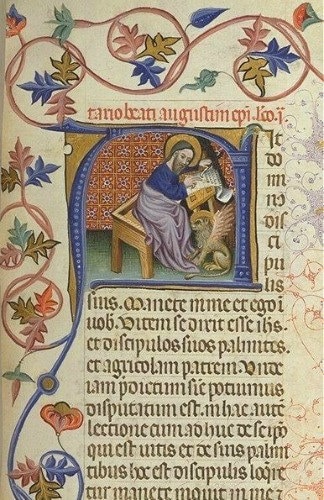 tario beati augustini epi. lco. i
it
do
mi
nꝰ
dis
ci
pu
lis
suis. Manete in me et ego i
uob. Vitem se dixit esse ihs.
et discipulos suos palmites.
et agricolam patrem. Unde
iam potuimus
disputatum est. in hac aute
lectione cum adhuc de se ipo
qui est uitis et de suis palmi
tibus hoc est discipulis loqre
tur manete inquit in me